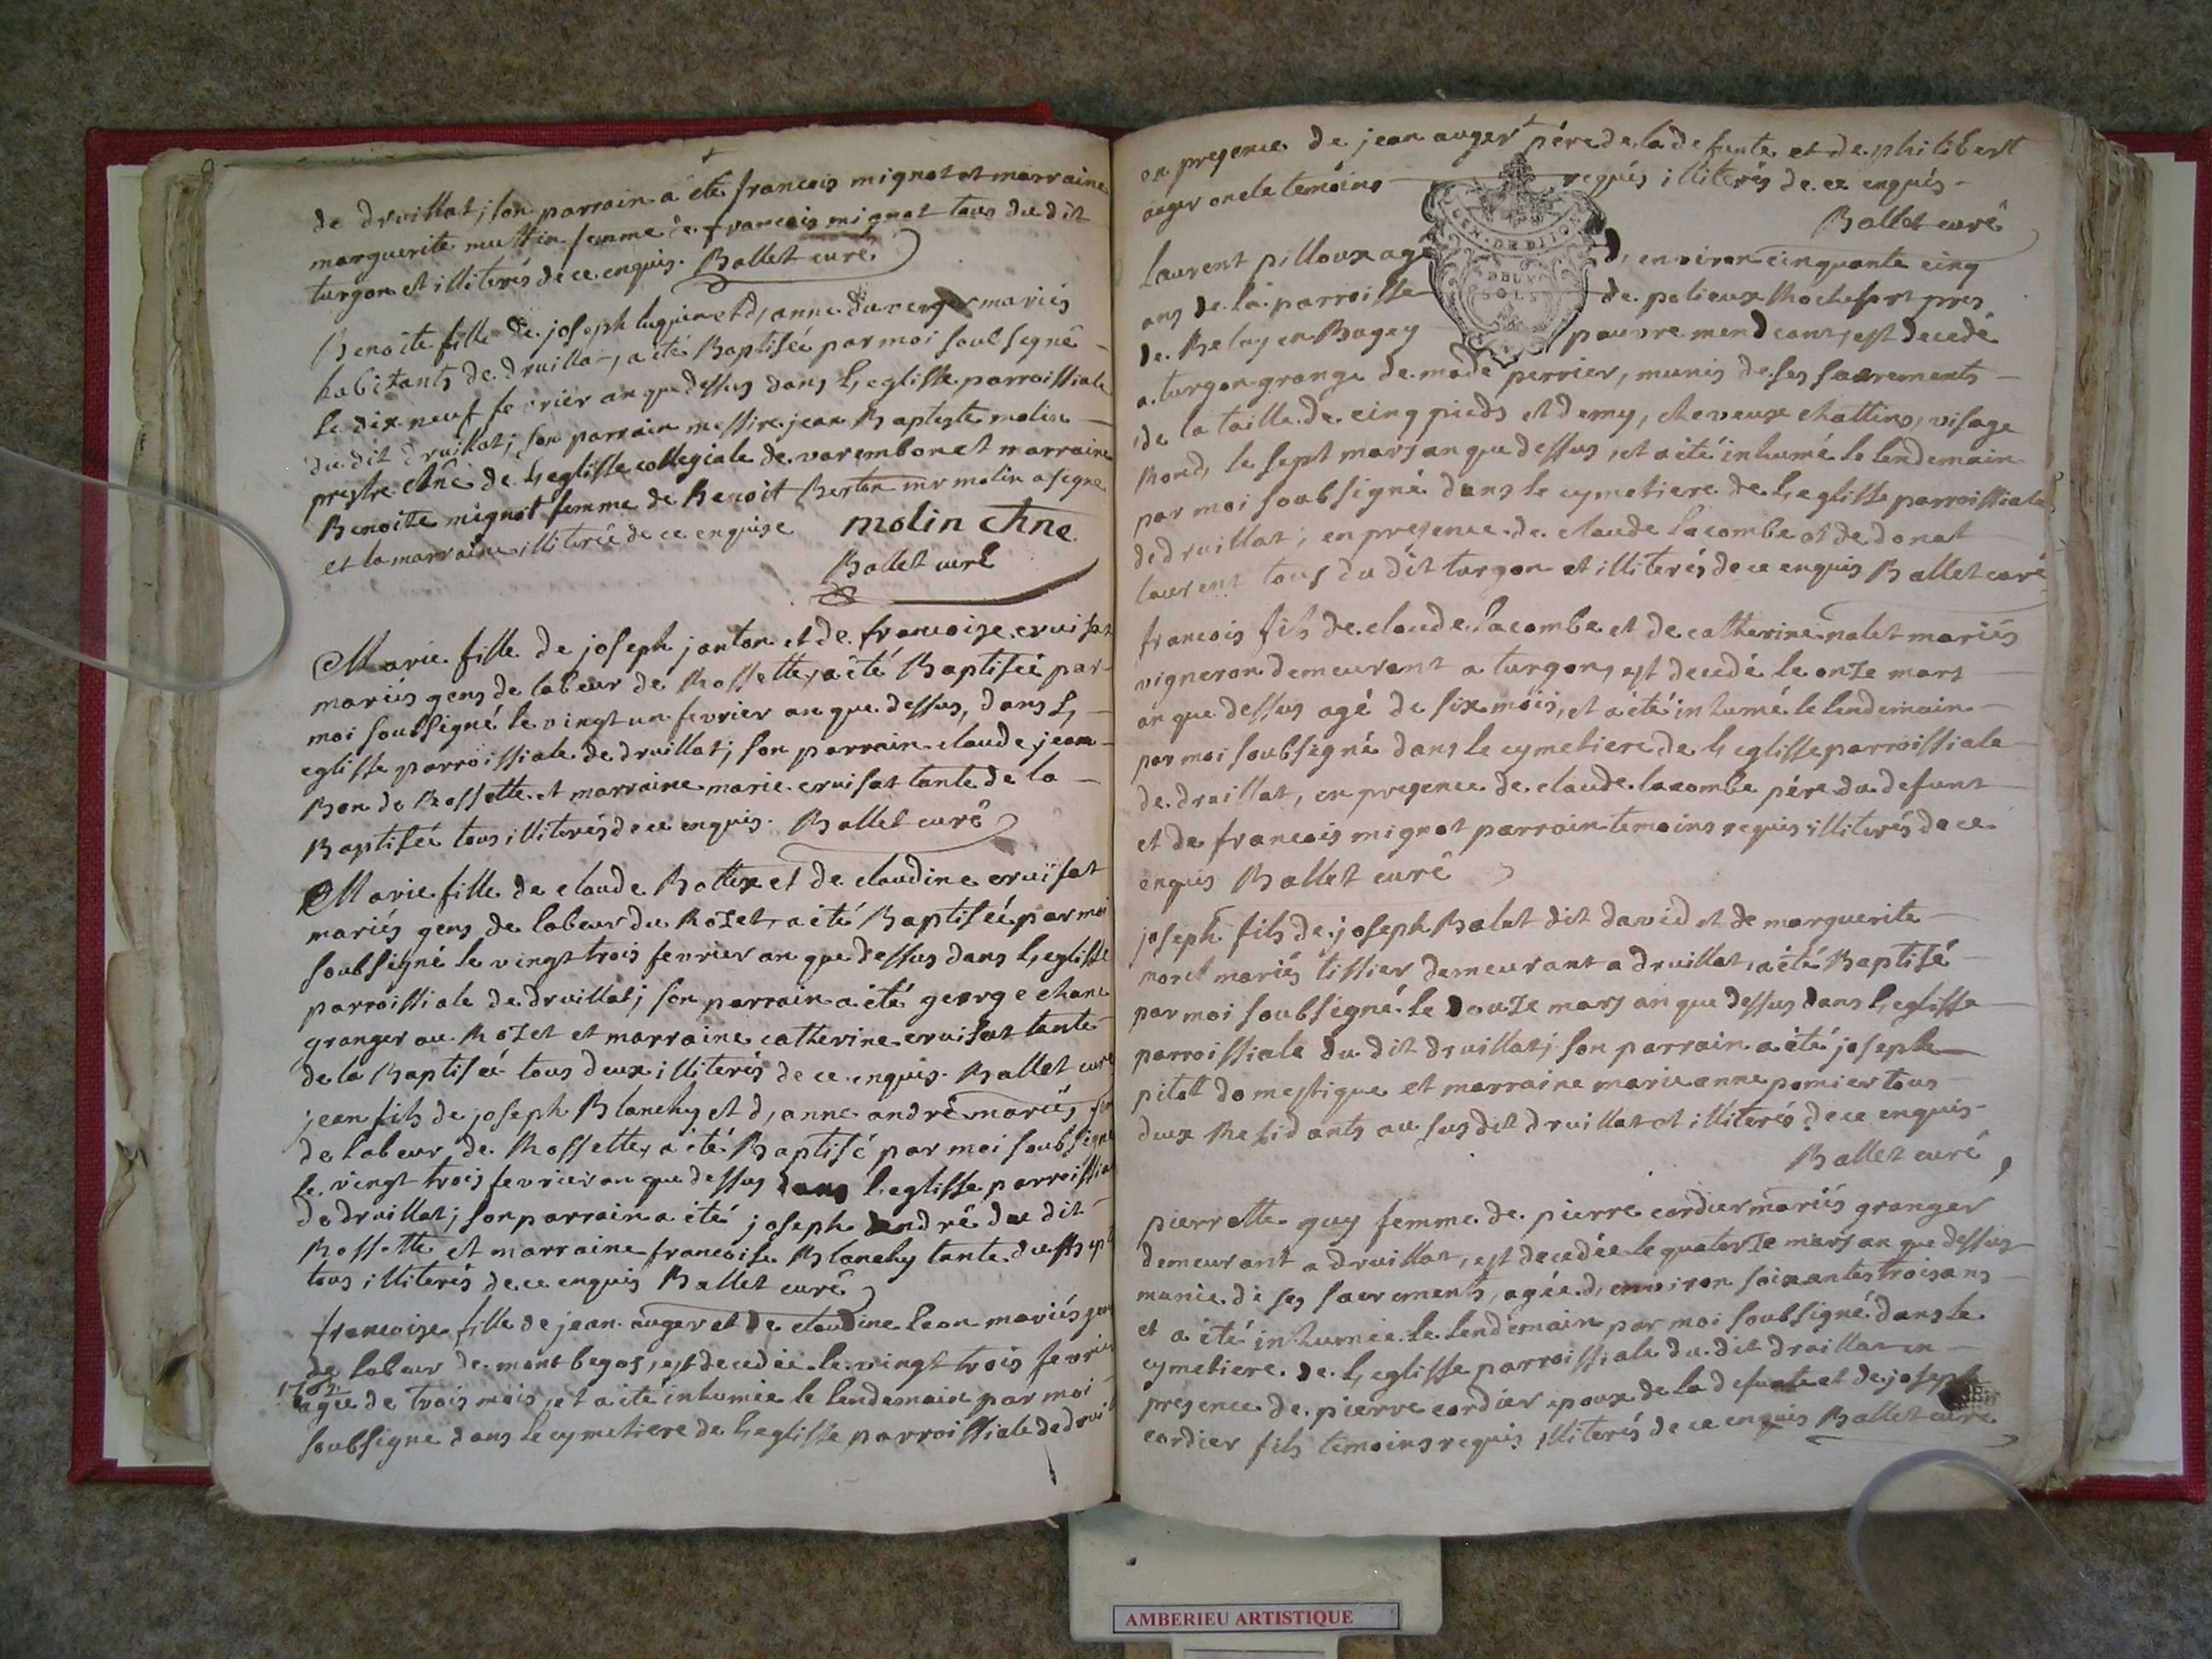 de druillat; son parrain a été francois mignot et marraine
marguerite muttin femme de francois mignot tous du dit
turgon et illiterés de ce enquis. Ballet curé
Benoite fille de joseph luguin et d, anne duverger mariés
habitants de druillat, a été Baptisée par moi soubsigné
le dix neuf fevrier an que dessus dans L, eglisse parroissiale
du dit druillat; son parrain messire jean Baptiste molin
prestre chne de L, eglisse collegiale de varembon et marraine
Benoitte mignot femme de Benoit Berton mr molin a signé
et la marraine illiterée de ce enquise molin chne
Ballet curé
Marie fille de joseph janton et de francoise cruisat
mariés gens de labeur de Rossette, a été Baptisée par
moi soubsigné le vingt un fevrier an que dessus, dans L,
eglisse parroissiale de druillat; son parrain claude jean
Bon de Rossette et marraine marie cruisat tante de la
Baptisée tous illiterés de ce enquis. Ballet curé
Marie fille de claude Bottex et de claudine cruisat
mariés gens de labeur du Rozet, a été Baptisée par moi
soubsigné le vingt trois fevrier an que dessus dans L, eglisse
parroissiale de druillat; son parrain a été george chane
granger au Rozet et marraine catherine cruisat tante
de la Baptisée tous deux illiterés de ce enquis. Ballet curé
jean fils de joseph Blanchy et d, anne andré mariés
de labeur de Rossette, a été Baptisé par moi soubsigné
le vingt trois fevrier an que dessus dans L, eglisse parroissiale
de druillat; son parrain a été joseph andré du dit
Rossette et marraine francoise Blanchy tante du
tous illiterés de ce enquis Ballet curé
francoise fille de jean auger et de claudine Leon mariés gens
de labeur de mont begos, est decedée le vingt trois fevrier
agée de trois mois, et a été inhumée le lendemain par moi
soubsigné dans le cymetiere de L, eglisse parroissiale de
en presence de jean auger pére de la defunte et de philibert
auger oncle temoins requis illiterés de ce enquis
Ballet curé
GEN. DE DIJON
DEUX
SOLS
Laurent pilloux agé d, environ cinquante cinq
ans de la parroisse de pelieux Rochefort pres
de Belay en Bugey pauvre mendiant, est decedé
a turgon grange de made perrier, munis de ses sacrements
de la taille de cinq pieds et demy, cheveux chattins, visage
Rond, le sept mars an que dessus, et a été inhumé le lendemain
par moi soubsigné dans le cymetiere de L, eglisse parroissiale
de druillat; en presence de claude lacombe et de donat
laurent tous du dit turgon et illiterés de ce enquis Ballet curé
francois fils de claude lacombe et de catherine nalet mariés
vigneron demeurant a turgon, est decedé le onze mars
an que dessus agé de six mois, et a été inhumé le lendemain
par moi soubsigné dans le cymetiere de L, eglisse parroissiale
de druillat, en presence de claude lacombe pére du defunt
et de francois mignot parrain temoins requis illiterés de ce
enquis Ballet curé
joseph fils de joseph Balet dit david et de marguerite
morel mariés tissier demeurant a druillat, a été Baptisé
par moi soubsigné le douze mars an que dessus dans L, eglisse
parroissiale du dit druillat; son parrain a été joseph
pitet domestique et marraine marie anne pomier tous
deux Residants au susdit druillat et illiterés de ce enquis
Ballet curé
pierrette guy femme de pierre cordier mariés granger
demeurant a druillat, est decedée le quatorze mars an que dessus
munie de ses sacrements, agée d, environ soixantes trois ans
et a été inhumée le lendemain par moi soubsigné dans le
cymetiere de L, eglisse parroissiale du dit druillat en
presence de pierre cordier epoux de la defunte et de joseph
cordier fils temoins requis illiterés de ce enquis Ballet curé
AMBERIEU ARTISTIQUE